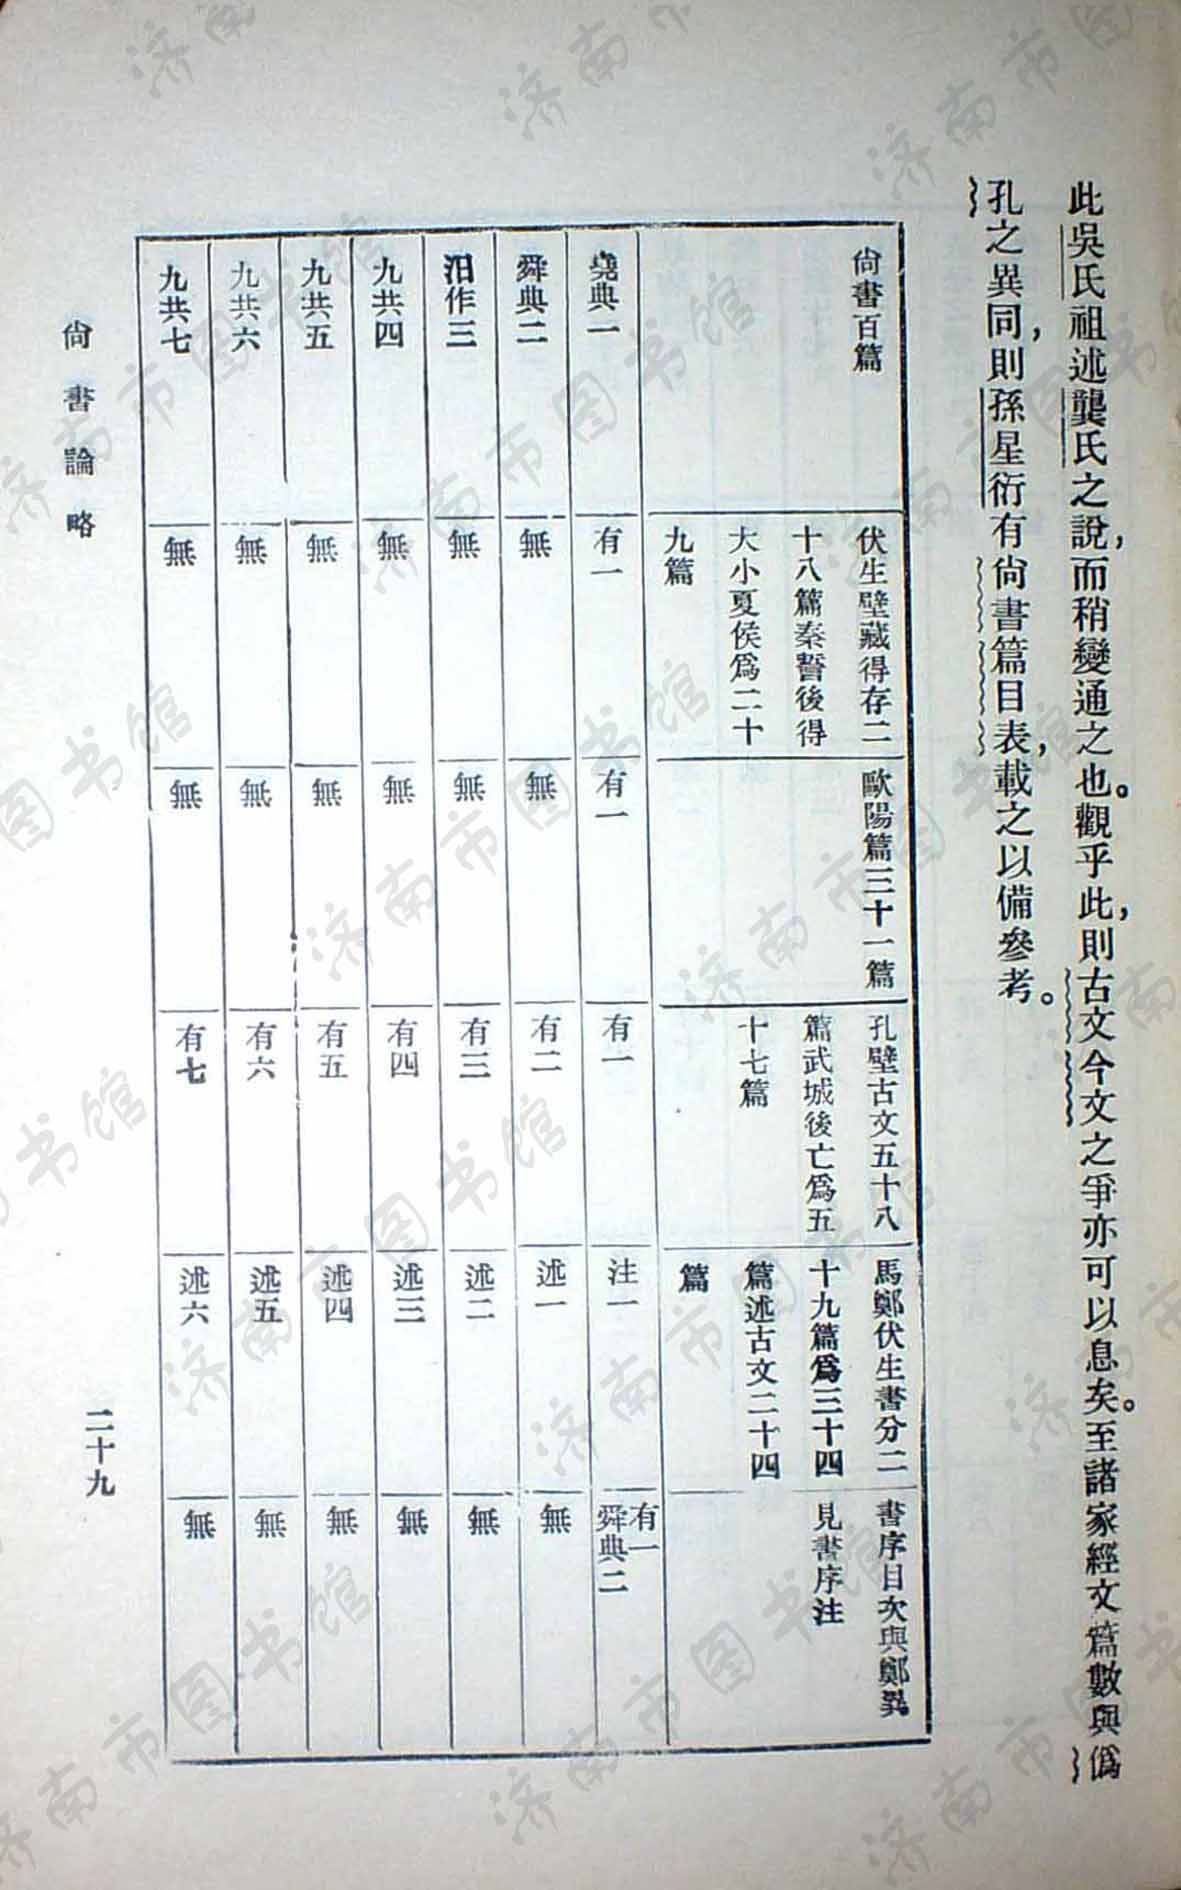 此吳氏祖述龔氏之說，而稍變通之也。觀乎此，則古文今文之爭亦可以息矣。至諸家經文篇數與僞
孔之異同，則孫星衍有尙書篇目表，載之以備參考。
尙書百篇
伏生壁藏得存二
十八篇秦誓後得
大小夏侯爲二十
九篇
歐陽篇三十一篇
孔壁古文五十八
篇武城後亡爲五
十七篇
馬鄭伏生書分二
十九篇爲三十四
篇述古文二十四
篇
書序目次與鄭異
見書序注
堯典一
有一
有一
有一
注一
有一
舜典二
舜典二
無
無
有二
述一
無
汨作三
無
無
有三
述二
無
九共四
無
無
有四
述三
無
九共五
無
無
有五
述四
無
九共六
無
無
有六
述五
無
九共七
無
無
有七
述六
無
尙書論略
二十九
济南市图书馆